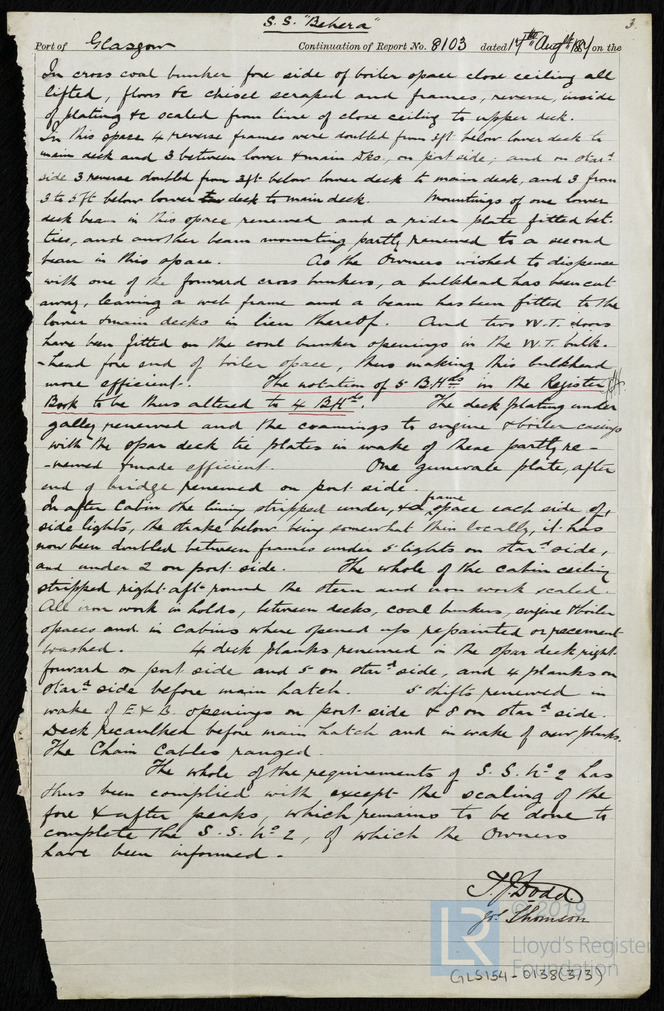 S.S. "Behera"
3.
Port of Glasgow Continuation of Report No. 8103 dated 17th Augst 1887 on the
In cross coal bunker fore side of boiler space close ceiling all
lifted, floors &c chisel scraped and frames, reverse, inside
of plating &c scaled from line of close ceiling to upper deck.
In this space 4 reverse frames were doubled from 3ft below lower deck to
main deck and 3 between lower & main Dks, on port side; and on Stard
side 3 reverse doubled from 3ft below lower deck to main deck, and 3 from
3 to 5 ft below lower deck to main deck. Mountings of one lower
deck beam in this space renewed and a rider plate fitted bet.
ties, and another beam mounting partly renewed to a second
beam in this space. As the Owners wished to dispense
with one of the forward cross bunkers, a bulkhead has been cut
away, leaving a web frame and a beam has been fitted to the
lower & main decks in lieu thereof. And two W.T. doors
have been fitted on the coal bunker openings in the W.T. bulk-
-head fore end of boiler space, thus making this bulkhead
more efficient. The notation of 5 BHds in the Register
Book to be thus altered to 4 BHds. The deck plating under
galley renewed and the coamings to engine & boiler casings
with the spar deck tie plates in wake of these partly re-
-newed & made efficient. One gunwale plate, after
end of bridge renewed on port side.
In after Cabin the lining stripped under, & a frame space each side of,
side lights, the strake below being somewhat thin locally, it has
now been doubled between frames under 5 lights on Stard side,
and under 2 on port side. The whole of the cabin ceiling
stripped right aft round the stern and iron work scaled.
All iron work in holds, between decks, coal bunkers, engine & boiler
spaces and in cabins where opened up repainted or recement
washed. 4 deck planks renewed in the spar deck right
forward on port side and 5 on Stard side, and 4 planks on
Stard side before main hatch. 5 shifts renewed in
wake of E & B openings on port side & 8 on Stard side.
Deck recaulked before main hatch and in wake of new planks.
The Chain Cables ranged.
The whole of the requirements of S.S. No 2 has
thus been complied with except the scaling of the
fore & after peaks, which remains to be done to
complete the S.S. No 2, of which the Owners
have been informed.
T. J. Dodd
Jas Thomson
© 2019
LR
Lloyd's Register
Foundation
GLS154-0138(3/3)